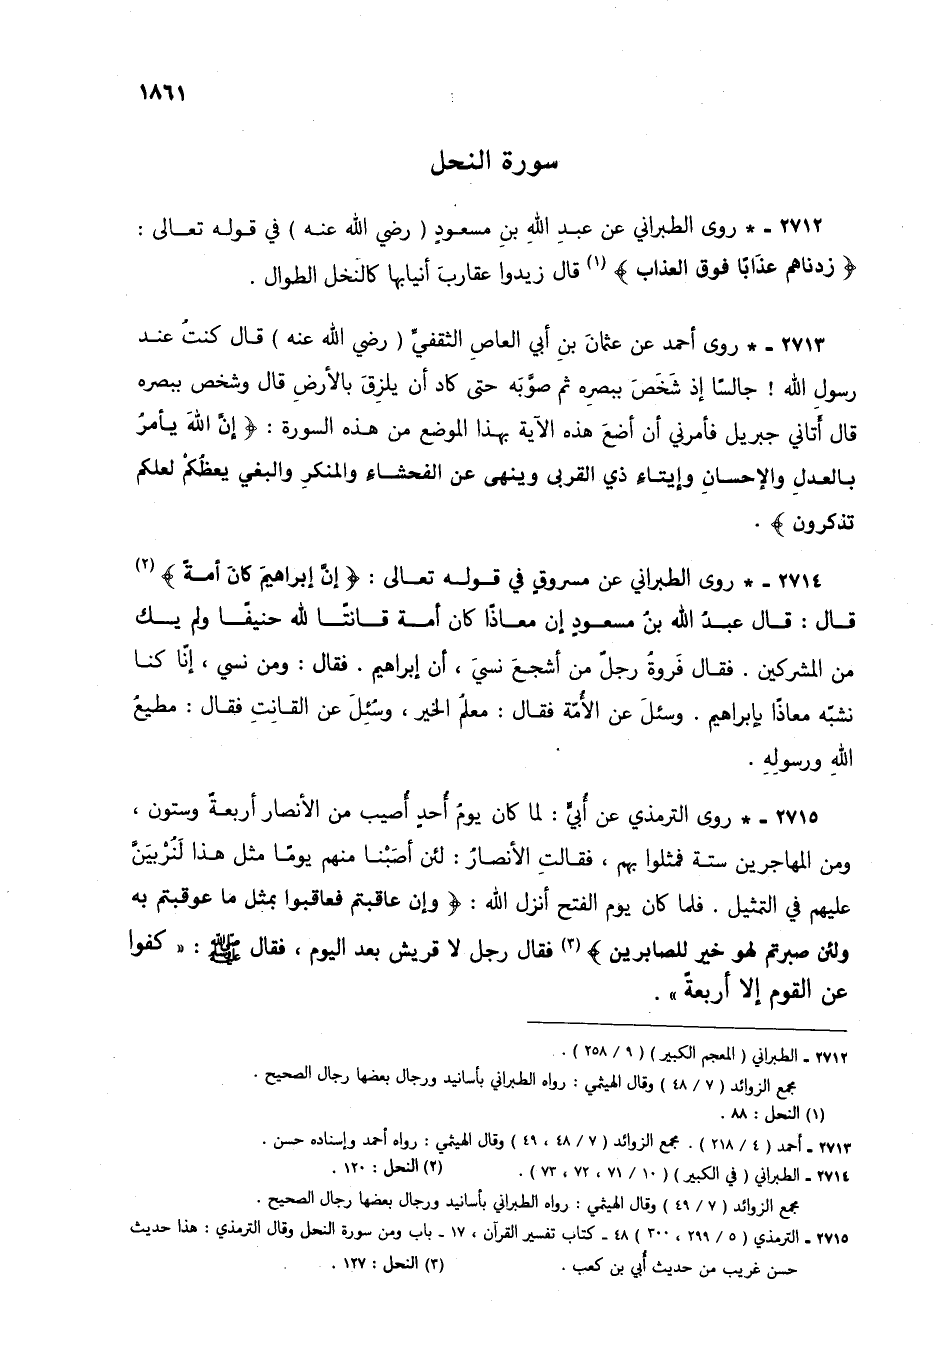 ١٨٦١
سورة النحل
٢٧١٢ ـ * روى الطبراني عن عبدِ اللهِ بنِ مسعودٍ ( رضي الله عنه ) في قوله تعالى :
﴿ زدناهم عذَابًا فوق العذاب ﴾ (١) قال زيدوا عقاربَ أنيابها كالنَخل الطوال .
٢٧١٣ ـ * روى أحمد عن عثمانَ بنِ أبي العاصِ الثقفيِّ ( رضي الله عنه ) قال كنتُ عند
رسولِ الله ! جالسًا إذ شَخَصَ ببصرِه ثم صوَّبَه حتى كاد أن يلزقَ بالأرضِ قال وشخص ببصره
قال أَتاني جبريل فأمرني أن أضعَ هذه الآية بهذا الموضع من هذه السورة : ﴿ إنَّ اللهَ يأمرُ
بالعدلِ والإحسانِ وإيتاءِ ذي القربى وينهى عن الفحشاءِ والمنكرِ والبغي يعظُكُمْ لعلكم
تذكرون ﴾ .
٢٧١٤ ـ * روى الطبراني عن مسروقٍ في قوله تعالى : ﴿ إنَّ إبراهيمَ كانَ أمةً ﴾ (٢)
قال : قال عبدُ الله بنُ مسعودٍ إن معاذًا كان أمة قانتًا لله حنيفًا ولم يك
من المشركين . فقال فَروةُ رجلٌ من أشجعَ نسيَ ، أن إبراهيم . فقال : ومن نسي ، إنَّا كنا
نشبّه معاذًا بإبراهيم . وسئلَ عن الأُمّة فقال : معلمُ الخير ، وسُئِلَ عن القانتِ فقال : مطيعُ
اللهِ ورسولِهِ .
٢٧١٥ ـ * روى الترمذي عن أُبيٍّ : لما كان يومُ أُحدٍ أُصيب من الأنصار أربعةٌ وستون ،
ومن المهاجرين ستة فمثلوا بهم ، فقالتِ الأنصارُ : لئن أصَبْنا منهم يومًا مثل هذا لَنُرْبيَنَّ
عليهم في التمثيل . فلما كان يوم الفتح أنزل الله : ﴿ وإن عاقبتم فعاقبوا بمثل ما عوقبتم به
ولئن صبرتم لهو خير للصابرين ﴾ (٣) فقال رجل لا قريش بعد اليوم ، فقال ﷺ : « كفوا
عن القوم إلا أربعةً » .
٢٧١٢ ـ الطبراني ( المعجم الكبير ) ( ٩ / ٢٥٨ ) .
مجمع الزوائد ( ٧ / ٤٨ ) وقال الهيثمي : رواه الطبراني بأسانيد ورجال بعضها رجال الصحيح .
(١) النحل : ٨٨ .
٢٧١٣ ـ أحمد ( ٤ / ٢١٨ ) . مجمع الزوائد ( ٧ / ٤٨ ، ٤٩ ) وقال الهيثمي : رواه أحمد وإسناده حسن .
٢٧١٤ ـ الطبراني ( في الكبير ) ( ١٠ / ٧١ ، ٧٢ ، ٧٣ ) . (٢) النحل : ١٢٠ .
مجمع الزوائد ( ٧ / ٤٩ ) وقال الهيثمي : رواه الطبراني بأسانيد ورجال بعضها رجال الصحيح .
٢٧١٥ ـ الترمذي ( ٥ / ٢٩٩ ، ٣٠٠ ) ٤٨ ـ كتاب تفسير القرآن ، ١٧ ـ باب ومن سورة النحل وقال الترمذي : هذا حديث
حسن غريب من حديث أُبي بن كعب . (٣) النحل : ١٢٧ .